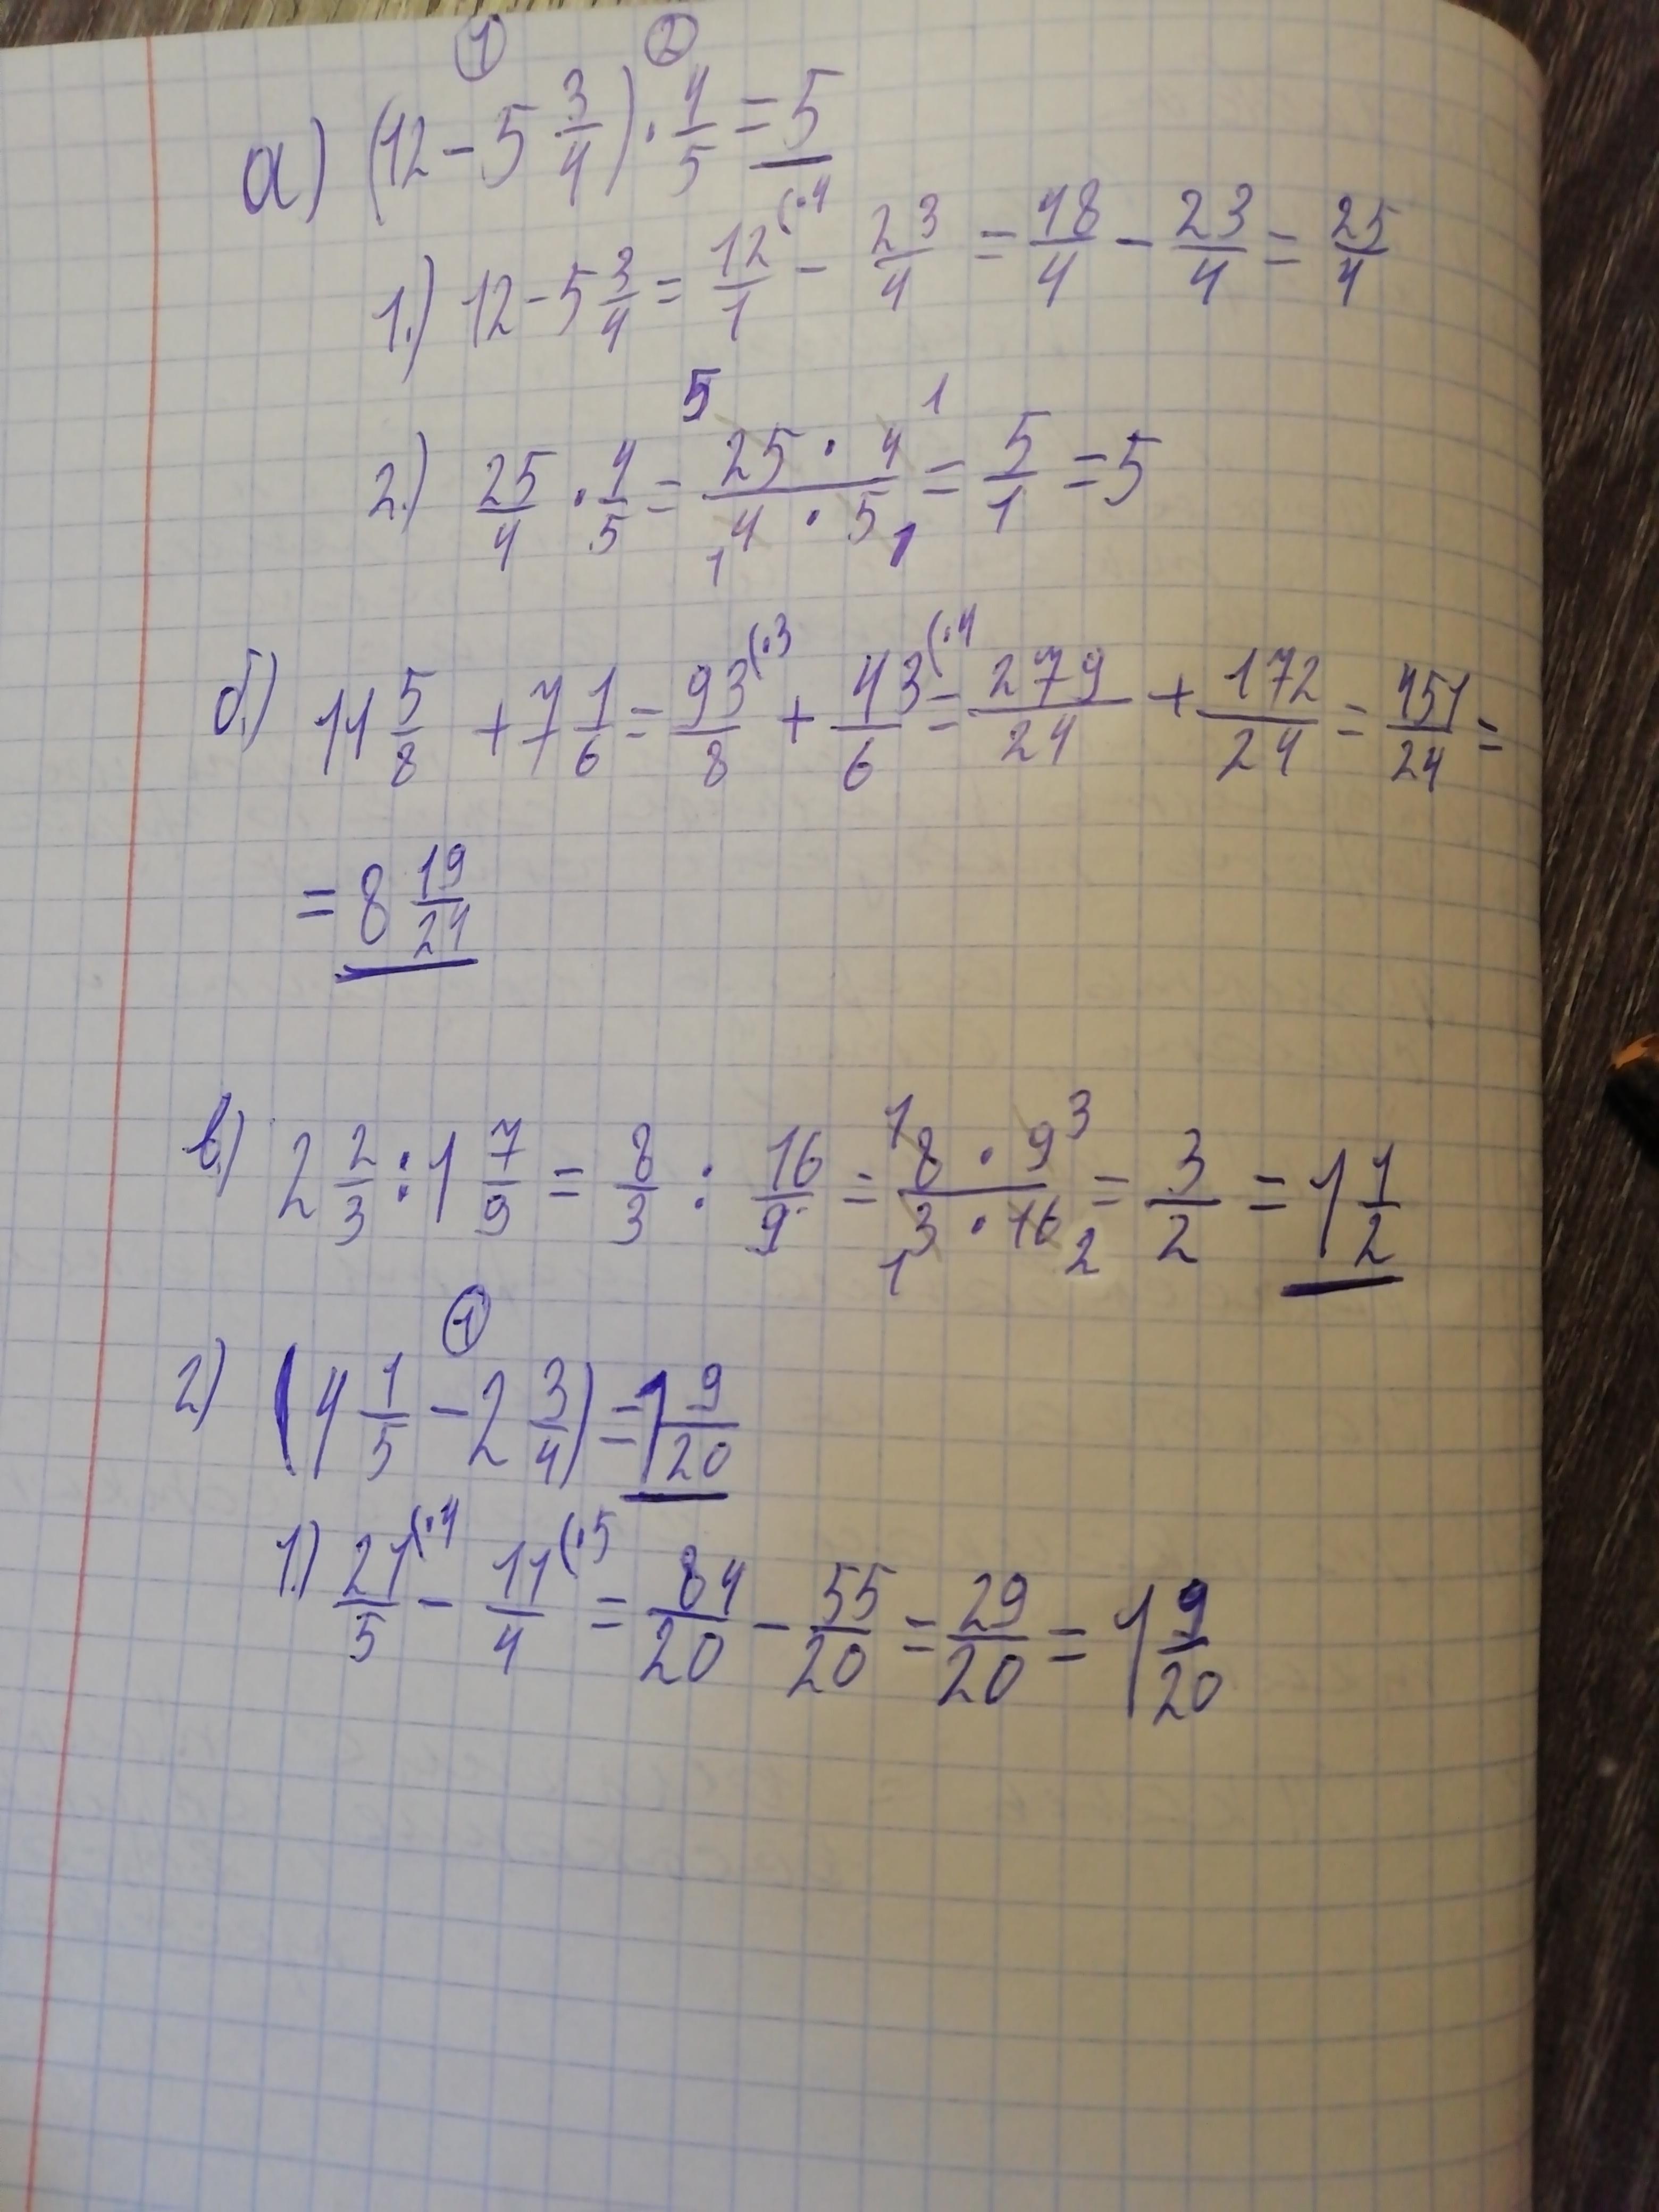 ① ②
а) (12 - 5 3/4) · 4/5 = 5
1.) 12 - 5 3/4 = 12/1 (·4 - 23/4 = 48/4 - 23/4 = 25/4
2.) 25/4 · 4/5 = 5 25 · 4 1 / 1 4 · 5 1 = 5/1 = 5
б.) 11 5/8 + 7 1/6 = 93/8 (·3 + 43/6 (·4 = 279/24 + 172/24 = 451/24 =
= 8 19/24
в.) 2 2/3 : 1 7/9 = 8/3 : 16/9 = 1 8 · 9 3 / 1 3 · 16 2 = 3/2 = 1 1/2
①
г) (4 1/5 - 2 3/4) = 1 9/20
1.) 21/5 (·4 - 11/4 (·5 = 84/20 - 55/20 = 29/20 = 1 9/20